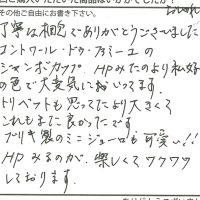 その他ご自由にお書き下さい。
丁寧な梱包でありがとうございました
コントワール・ドゥ・ファミーユの
シャンボカップ、HPみたのより私好
の色で大変気に入っています。
トリベットも思ってたより大きくて
これもまた良かったです
ブリキ製のミニジョーロも可愛い!!
HPみるのが、楽しくてワクワク
しております。